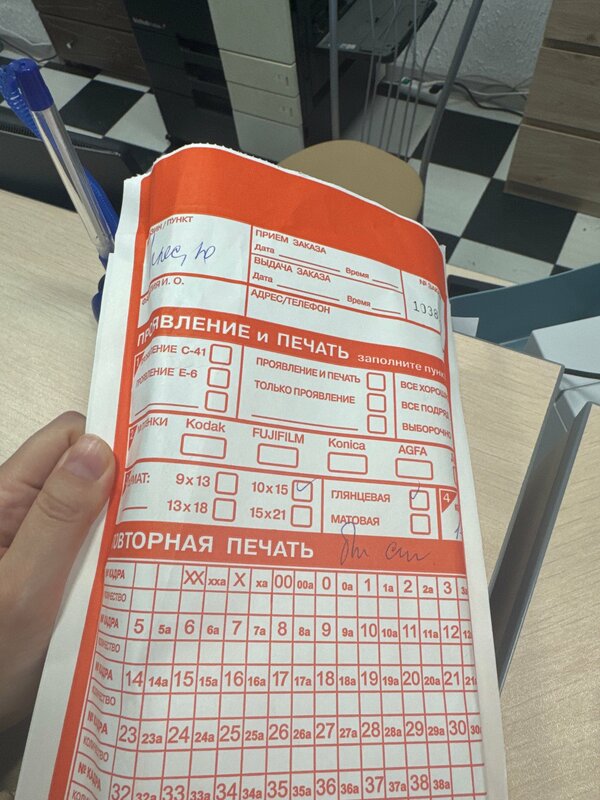 ПУНКТ
ПРИЕМ ЗАКАЗА
Дата Время
ВЫДАЧА ЗАКАЗА
Дата Время
АДРЕС/ТЕЛЕФОН
И. О.
1038
ПРОЯВЛЕНИЕ и ПЕЧАТЬ заполните
C-41
E-6
ПРОЯВЛЕНИЕ И ПЕЧАТЬ
ТОЛЬКО ПРОЯВЛЕНИЕ
ВСЕ
ВСЕ
ВЫБОРОЧНО
Kodak FUJIFILM Konica AGFA
9x13 10x15
13x18 15x21
ГЛЯНЦЕВАЯ
МАТОВАЯ
4
ПЕЧАТЬ
№ КАДРА XX xxa X xa 00 00a 0 0a 1 1a 2 2a 3
КОЛИЧЕСТВО
5 5a 6 6a 7 7a 8 8a 9 9a 10 10a 11 11a 12
КОЛИЧЕСТВО
14 14a 15 15a 16 16a 17 17a 18 18a 19 19a 20 20a 21
КОЛИЧЕСТВО
№ КАДРА 23 23a 24 24a 25 25a 26 26a 27 27a 28 28a 29 29a 30
КОЛИЧЕСТВО
№ КАДРА 32 32a 33 33a 34 34a 35 35a 36 36a 37 37a 38 38a